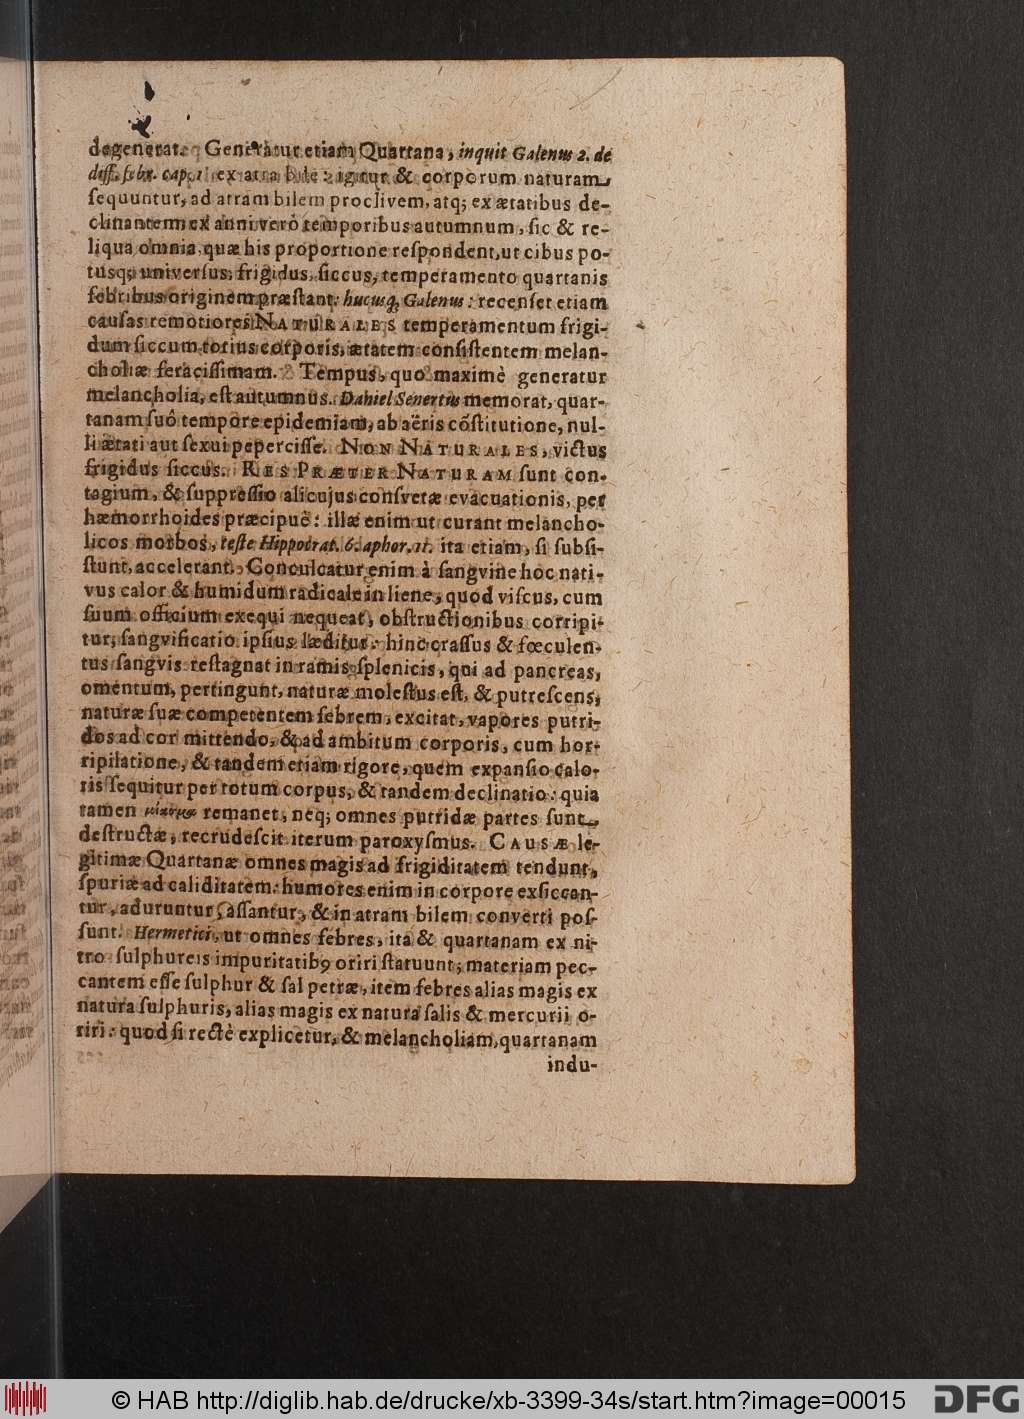 degenerat. Generatur etiam Quartana, inquit Galenus 2. de
diff. febr. cap. 1 ex atra bile: igitur & corporum naturam
ſequuntur, ad atram bilem proclivem, atq; ex ætatibus de-
clinantem: ex anni verò temporibus autumnum, ſic & re-
liqua omnia, quæ his proportione reſpondent, ut cibus po-
tusq; univerſus, frigidus, ſiccus, temperamento quartanis
febribus originem præſtant: hucusq; Galenus: recenſet etiam
cauſas remotiores NATURALES temperamentum frigi-
dum ſiccum totius corporis, ætatem conſiſtentem melan-
choliæ feraciſſimam. Tempus, quo maximè generatur
melancholia, eſt autumnus. Dahiel Senertus memorat, quar-
tanam ſuô tempore epidemiam, ab aëris cõſtitutione, nul-
li ætati aut ſexui peperciſſe. NON NATURALES, victus
frigidus ſiccus. RES PRÆTER NATURAM ſunt con-
tagium, & ſuppreſſio alicujus conſvetæ evacuationis, per
hæmorrhoides præcipuè: illæ enim ut curant melancho-
licos morbos, teſte Hippocrat. 6. aphor. 11. ita etiam, ſi ſubſi-
ſtunt, accelerant. Conculcatur enim à ſangvine hoc nati-
vus calor & humidum radicale in liene, quod viſcus, cum
ſuum officium exequi nequeat, obſtructionibus corripi-
tur, ſangvificatio ipſius læditur: hinc craſſus & fœculen-
tus ſangvis reſtagnat in ramis ſplenicis, qui ad pancreas,
omentum, pertingunt, naturæ moleſtus eſt, & putreſcens,
naturæ ſuæ competentem febrem, excitat, vapores putri-
dos ad cor mittendo, & ad ambitum corporis, cum hor-
ripilatione, & tandem etiam rigore, quem expanſio calo-
ris ſequitur per totum corpus, & tandem declinatio: quia
tamen remanet, neq; omnes putridæ partes ſunt
deſtructæ, recrudeſcit iterum paroxyſmus. CAUSÆ le-
gitimæ Quartanæ omnes magis ad frigiditatem tendunt,
ſpuriæ ad caliditatem: humores enim in corpore exſiccan-
tur, aduruntur, aſſantur, & in atram bilem converti poſ-
ſunt. Hermetici, ut omnes febres, ita & quartanam ex ni-
tro ſulphureis impuritatib9 oriri ſtatuunt; materiam pec-
cantem eſſe ſulphur & ſal petræ, item febres alias magis ex
natura ſulphuris, alias magis ex natura ſalis & mercurii o-
riri: quod ſi rectè explicetur, & melancholiam, quartanam
indu-
© HAB http://diglib.hab.de/drucke/xb-3399-34s/start.htm?image=00015
DFG